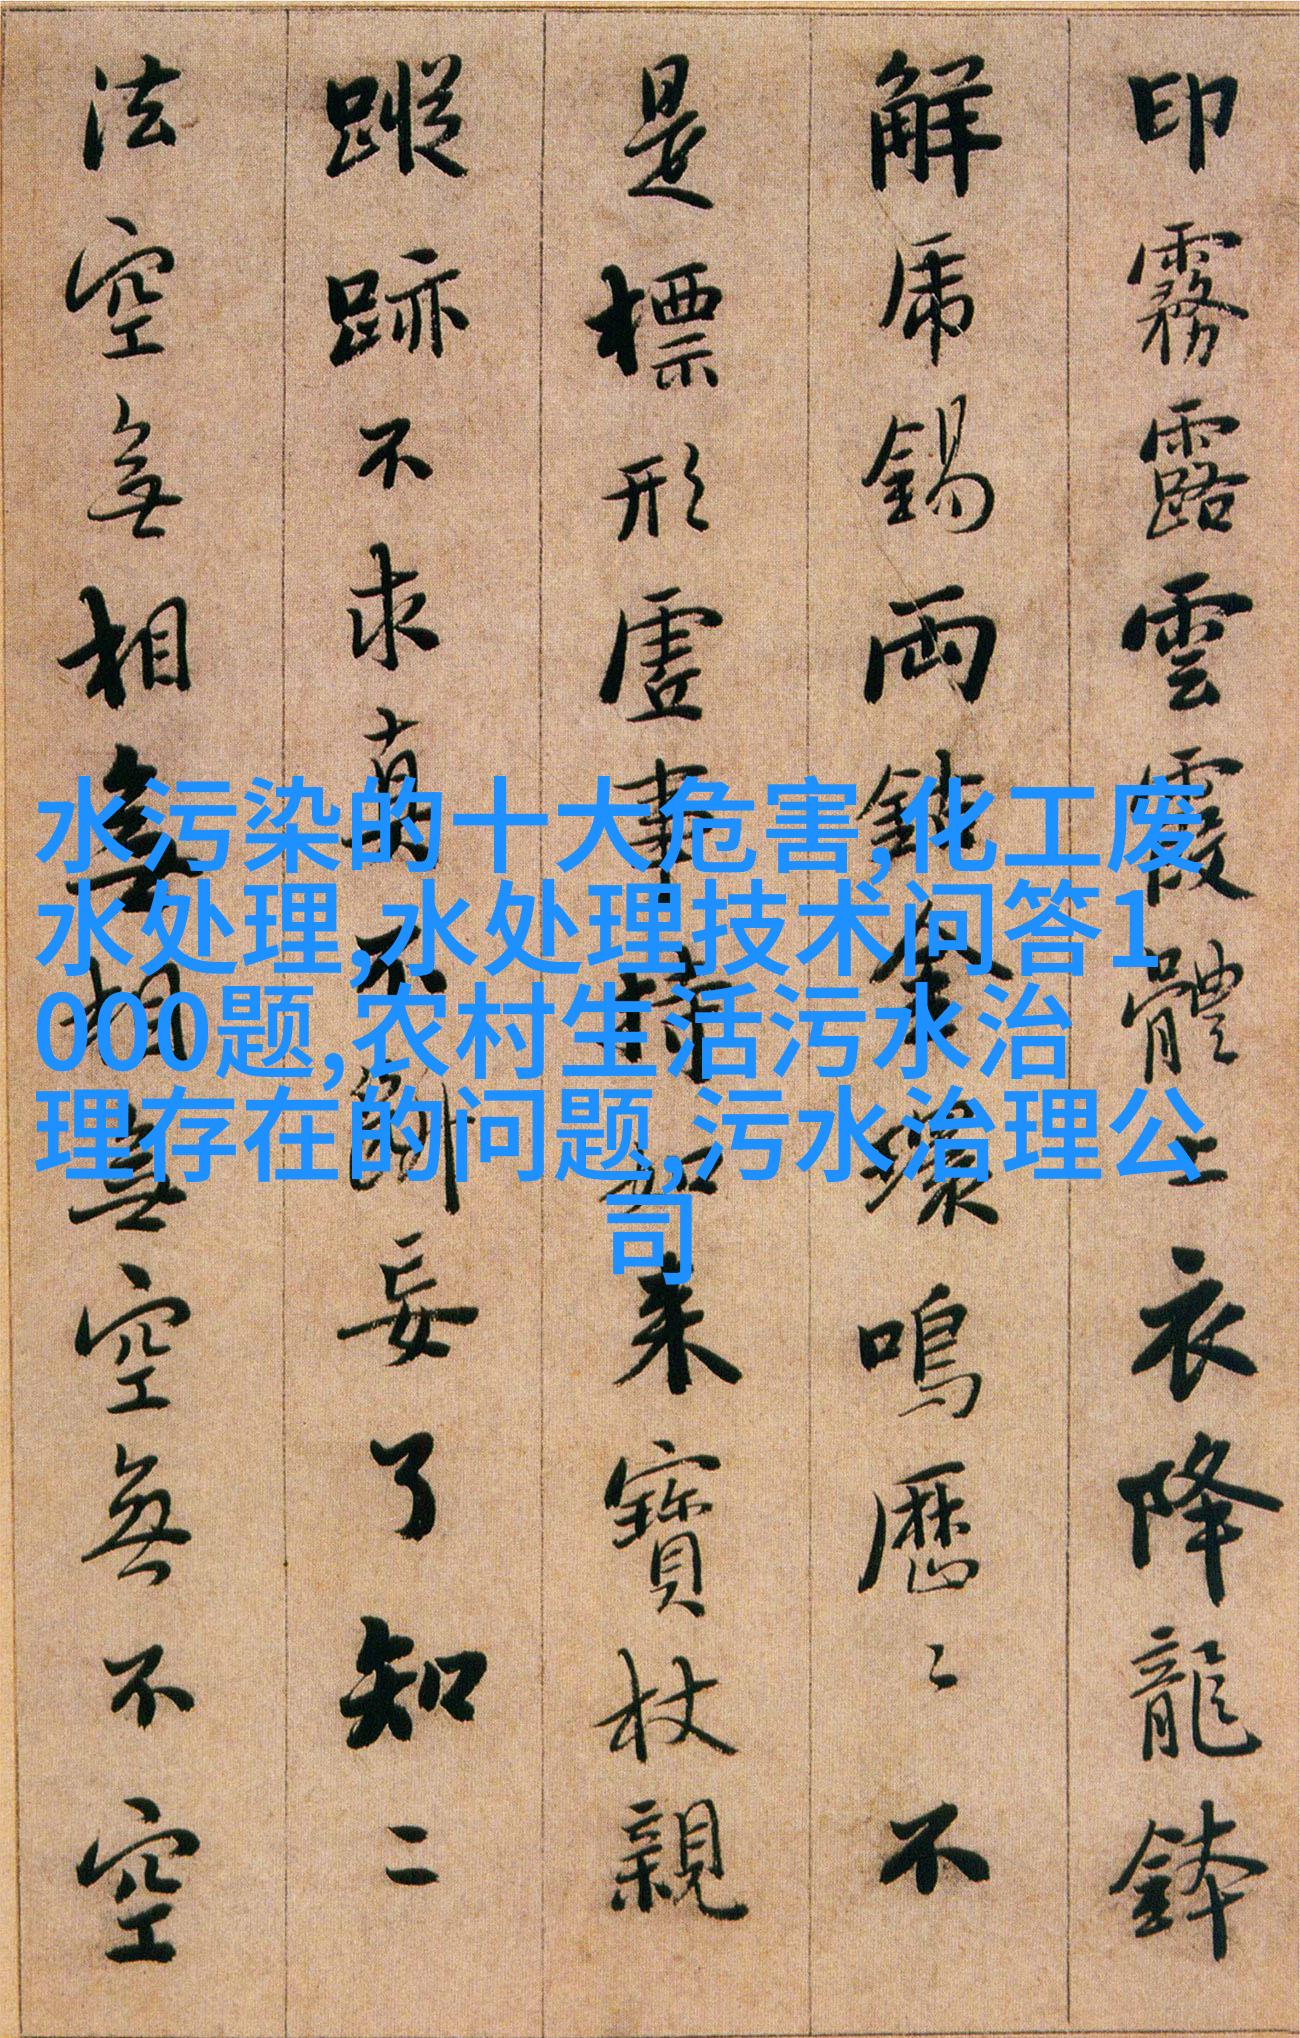 印霧露雲霞體上衣降龍鉢
解虎錫兩鈷金環鳴歷々不
是標形虛事持如來寶杖親
蹤跡不求真不斷妄了知二
法空無相無相無空無不空
水污染的十大危害,化工废
水处理,水处理技术问答1
000题,农村生活污水治
理存在的问题,污水治理公
司